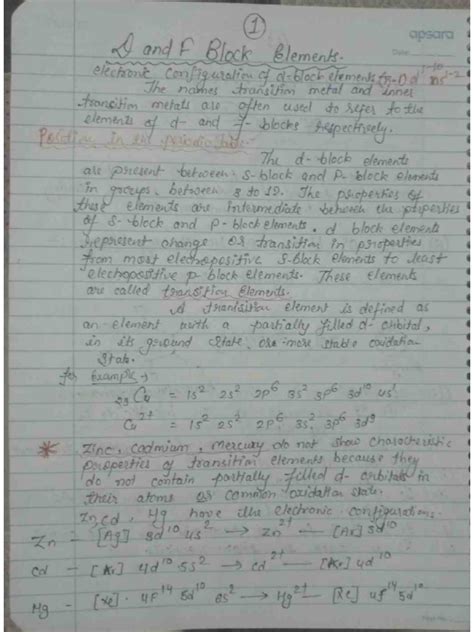 1
apsara
Date:
D and F Block Elements.
electronic configuration of d-block elements (n-1)d 1-10 ns 1-2
The names transition metal and inner
transition metals are often used to refer to the
elements of d- and f- blocks respectively.
Position in the periodic table:
The d-block elements
are present between S-block and P-block elements
in groups, between 3 to 12. The properties of
these elements are intermediate between the properties
of S-block and P-block elements. d block elements
represent change or transition in properties
from most electropositive S-block elements to least
electropositive p block elements. These elements
are called transition elements.
A transition element is defined as
an element with a partially filled d-orbital,
in its ground state, or more stable oxidation
state.
for Example →
29Cu = 1s² 2s² 2p⁶ 3s² 3p⁶ 3d¹⁰ 4s¹
Cu²⁺ = 1s² 2s² 2p⁶ 3s² 3p⁶ 3d⁹
* Zinc, Cadmium, Mercury do not show characteristic
properties of transition elements because they
do not contain partially filled d-orbitals in
their atoms or common oxidation state.
Zn Cd, Hg have electronic configurations.
Zn - [Ag] 3d¹⁰ 4s² → Zn²⁺ — [Ar] 3d¹⁰
Cd - [Kr] 4d¹⁰ 5s² → Cd²⁺ — [Kr] 4d¹⁰
Hg - [Xe] 4f¹⁴ 5d¹⁰ 6s² → Hg²⁺ — [Xe] 4f¹⁴ 5d¹⁰